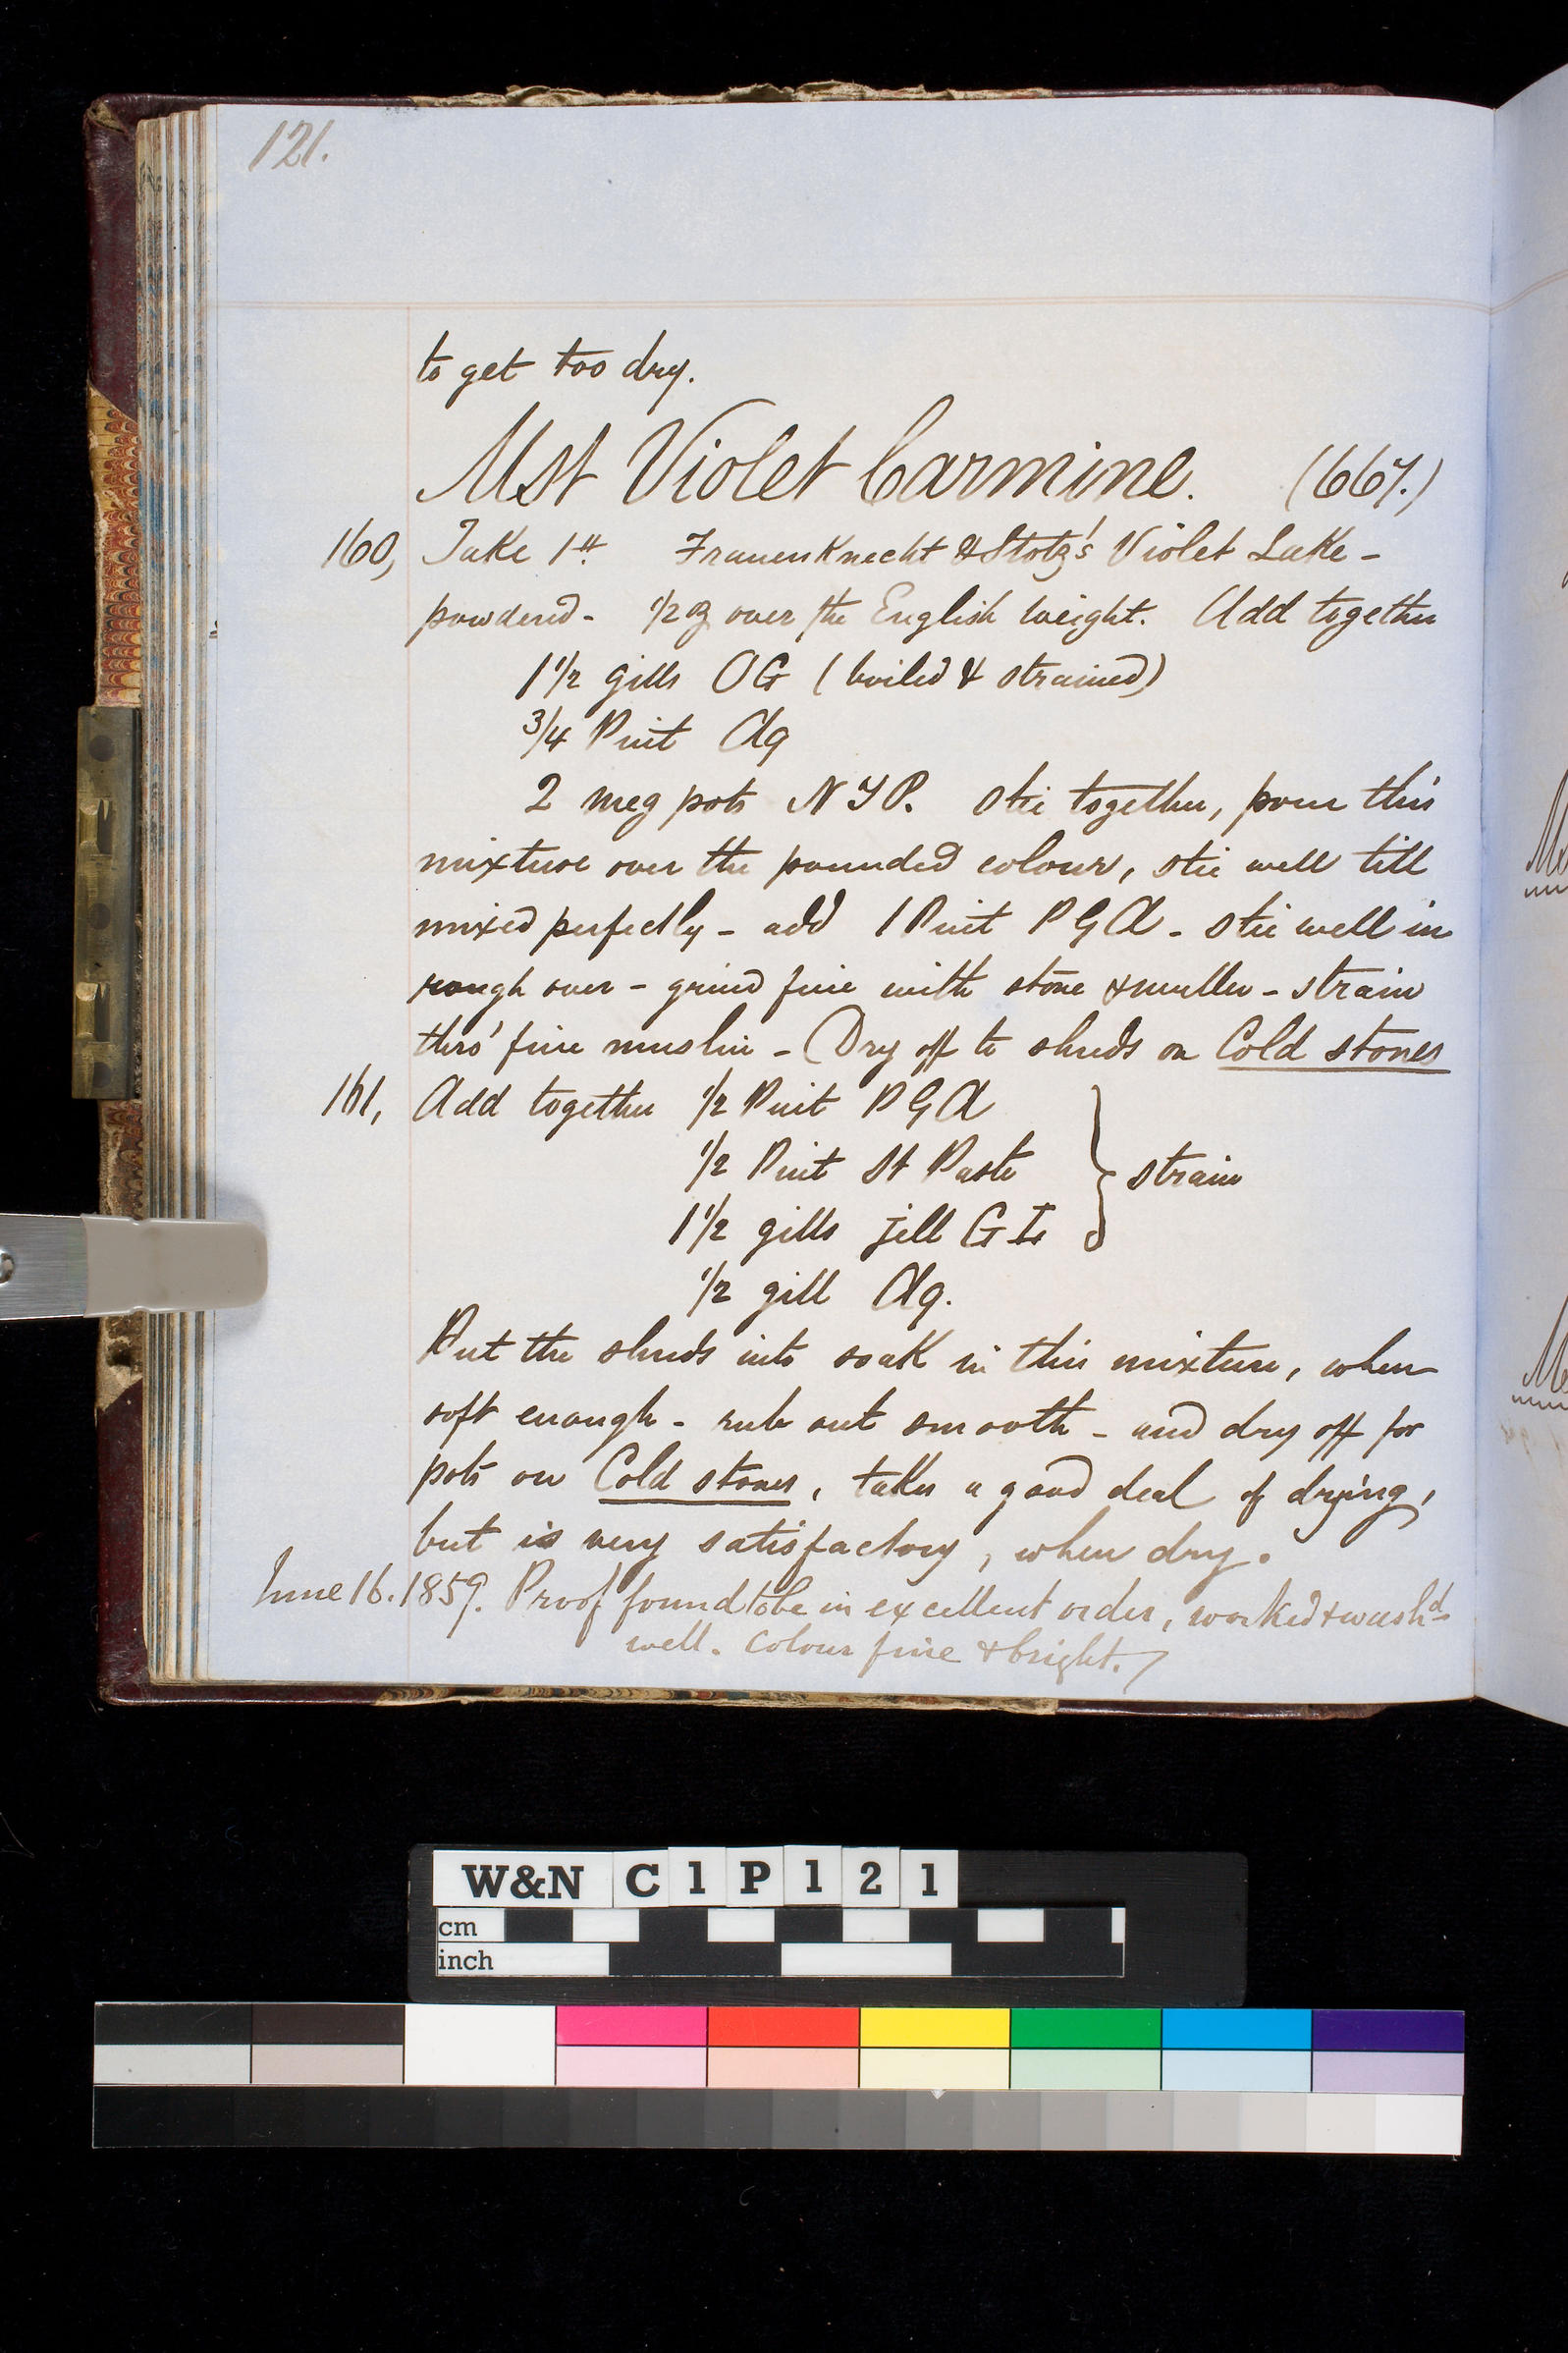 121.
to get too dry.
Mst Violet Carmine. (667.)
160, Take 1 tt. Frauenknecht & Stotz's Violet Lake -
powdered - 1/2 oz over the English weight. Add together
1 1/2 gills OG (boiled & strained)
3/4 Pint Aq
2 meg pots N Y P. Stir together, pour this
mixture over the pounded colour, stir well till
mixed perfectly - add 1 Pint P G A - stir well in
rough over - grind fine with stone & muller - strain
thro' fine muslin - Dry off to shreds on Cold stones
161, Add together 1/2 Pint P G A
1/2 Pint St Paste } strain
1 1/2 gills jell G I
1/2 gill Aq.
Put the shreds into soak in this mixture, when
soft enough - rub out smooth - and dry off for
pots on Cold stones, takes a good deal of drying,
but is very satisfactory, when dry.
June 16. 1859. Proof found to be in excellent order, worked & wash'd
well. Colour fine & bright.
W&N C1P121
cm
inch